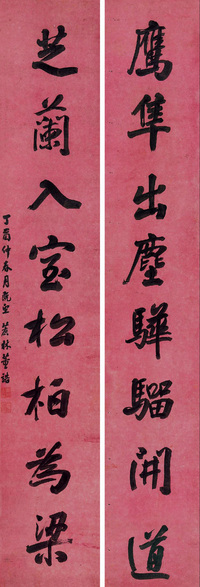 鷹隼出塵驊騮開道
芝蘭入室松柏為梁
丁酉仲春月既望 蔗林董誥